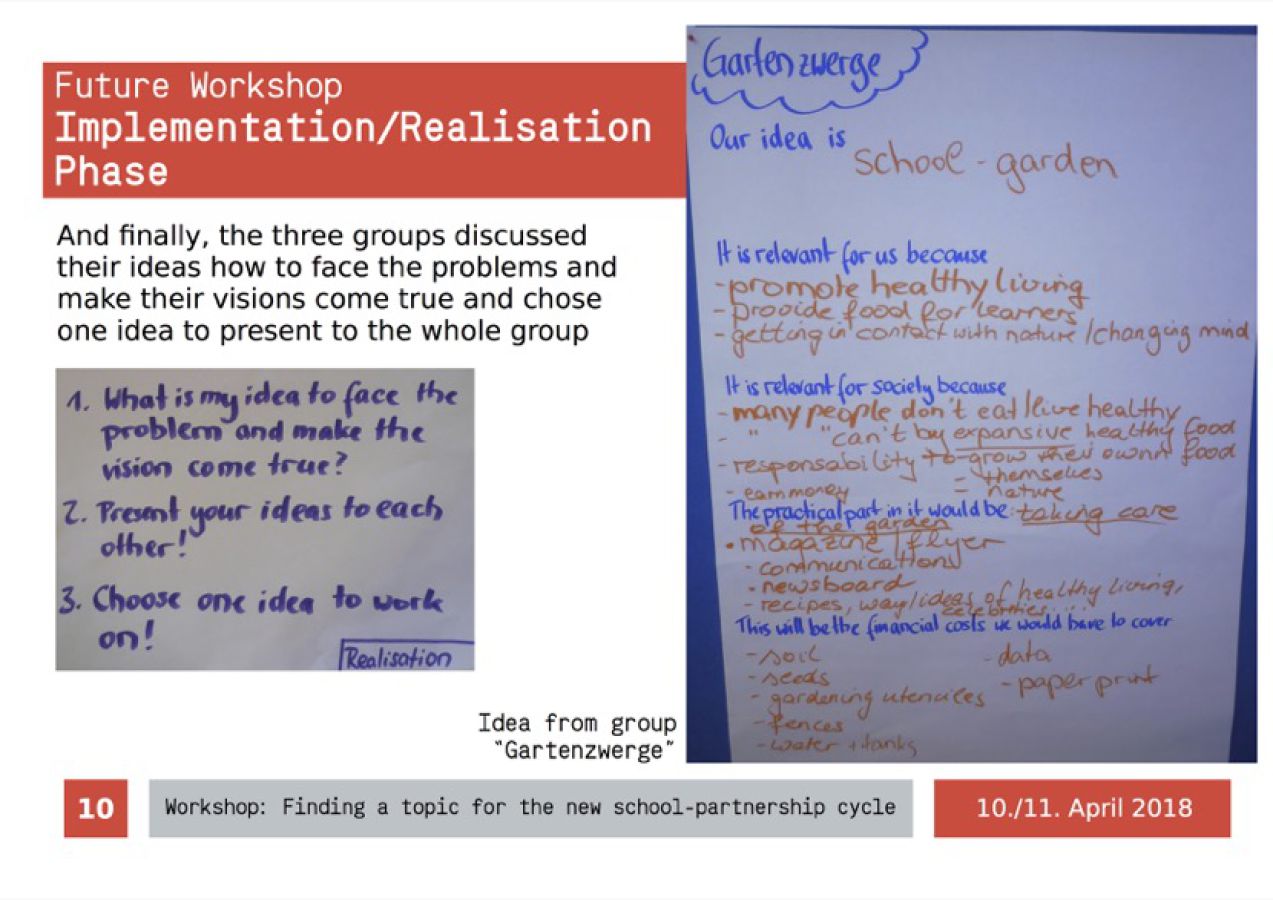 Future Workshop
Implementation/Realisation
Phase
And finally, the three groups discussed
their ideas how to face the problems and
make their visions come true and chose
one idea to present to the whole group
1. What is my idea to face the
problem and make the
vision come true?
2. Present your ideas to each
other!
3. Choose one idea to work
on!
Realisation
Idea from group
"Gartenzwerge"
Gartenzwerge
Our idea is
school - garden
It is relevant for us because
- promote healthy living
- provide food for learners
- getting in contact with nature / changing mind
It is relevant for society because
- many people don't eat/live healthy
- " " can't by expansive healthy food
- responsability to grow their ownn food
- themselves
- earn money
= nature
The practical part in it would be: taking care
of the garden
• magazine / flyer
- communications
• newsboard
- recipes, way/ideas of healthy living,
celebrities...
This will be the financial costs we would have to cover
- soil
- data
- seeds
- paper print
- gardening utencilcs
- fences
- water + tanks
10
Workshop: Finding a topic for the new school-partnership cycle
10./11. April 2018